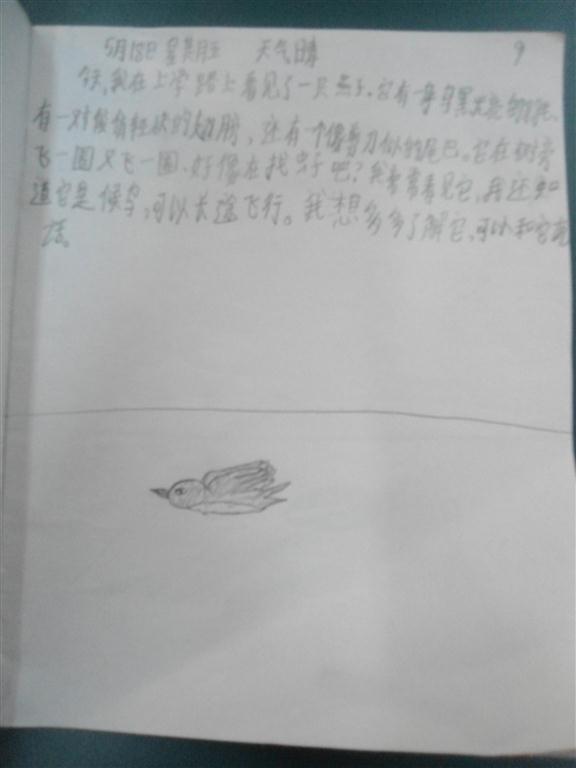 5月18日 星期五 天气晴 9
今天,我在上学路上看见了一只燕子,它有一身乌黑光亮的羽毛、
有一对俊俏轻快的翅膀,还有一个像剪刀似的尾巴。它在树旁
飞一圈又飞一圈、好像在找虫子吧?我常常看见它,我还知
道它是候鸟,可以长途飞行。我想多多了解它,可以和它